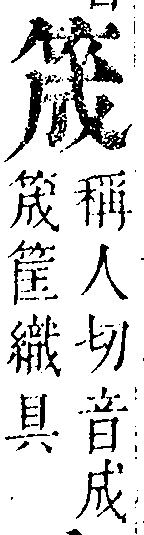 筬
稱人切音成
筬筐織具